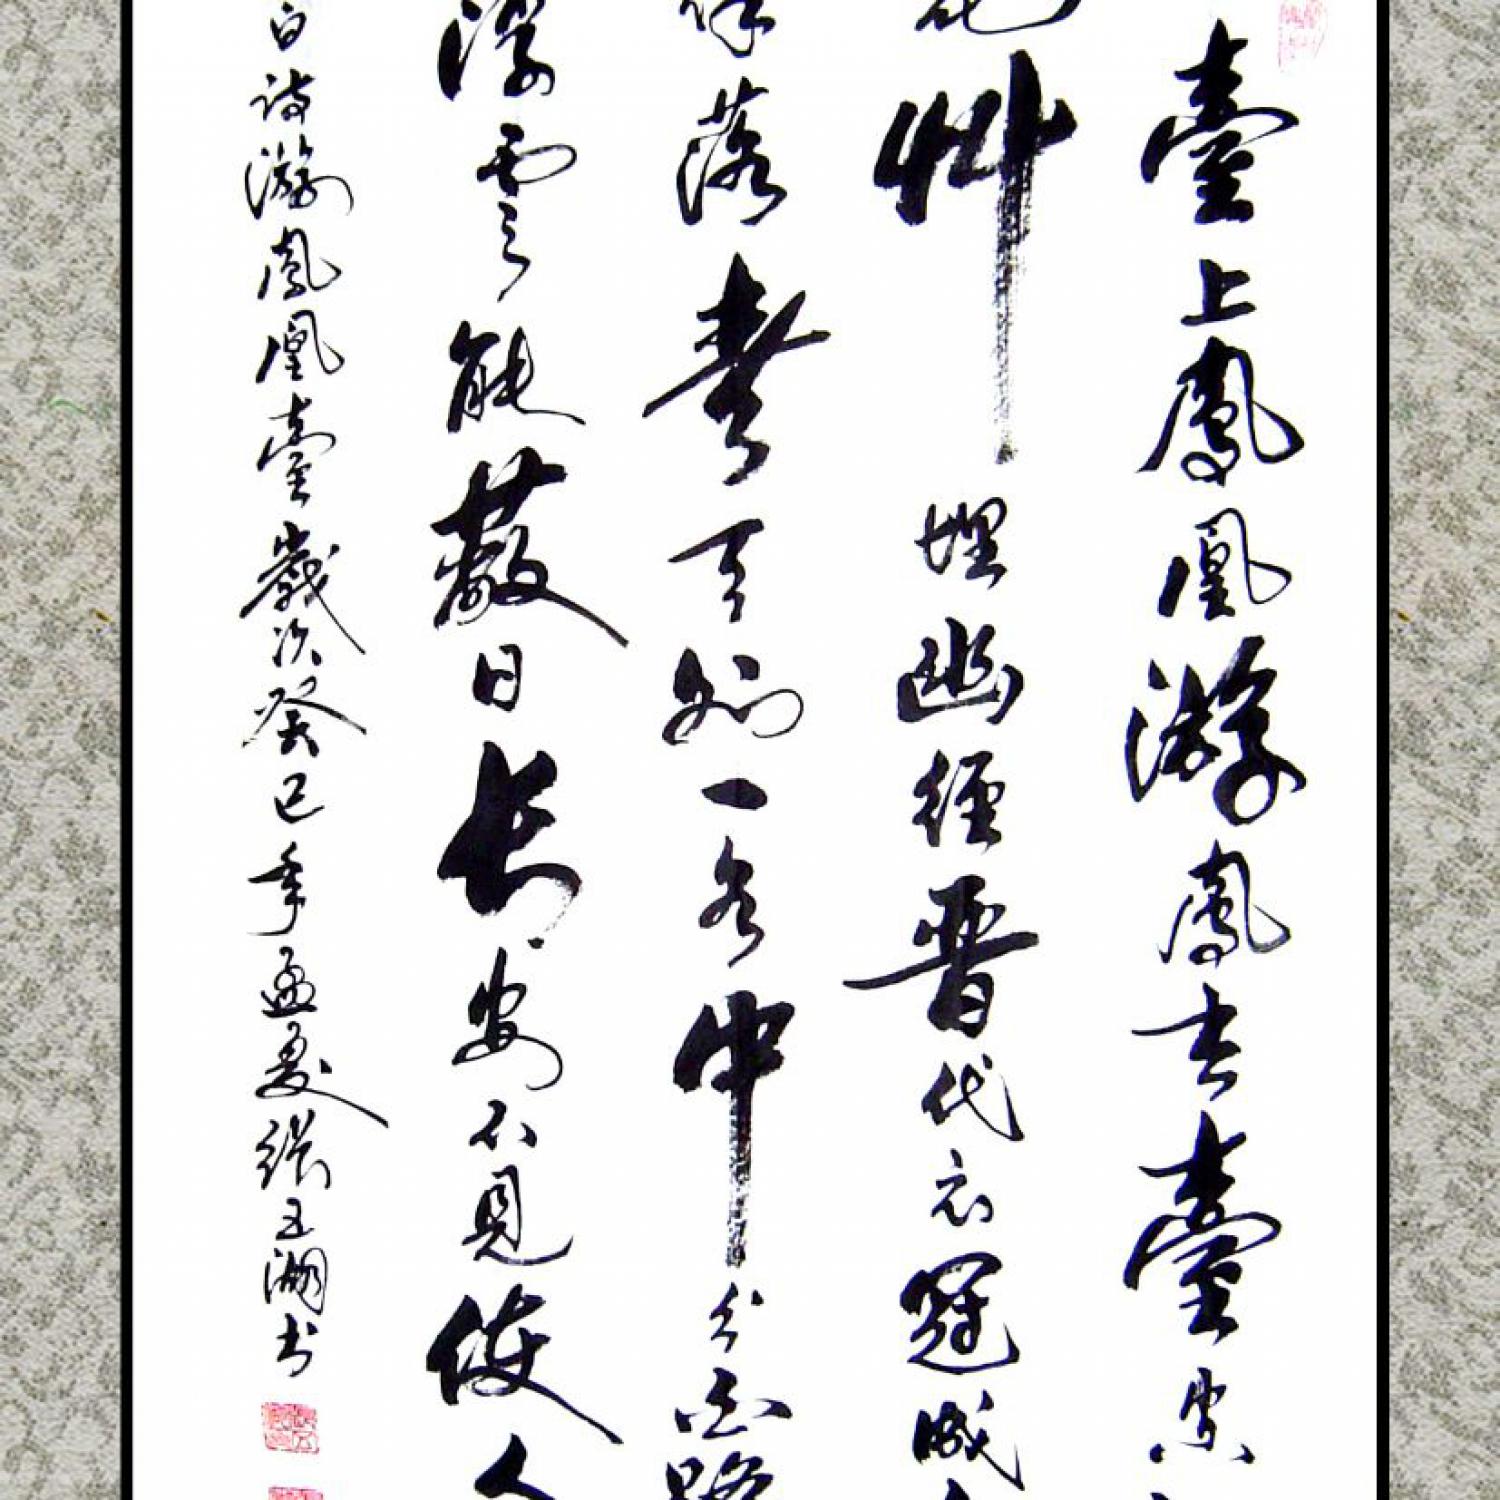 臺上鳳凰游鳳去臺空
艸埋幽徑晉代衣冠成
落青天外一水中分白
浮雲能蔽日長安不見使人
白詩游鳳凰臺歲次癸巳年孟夏湖书